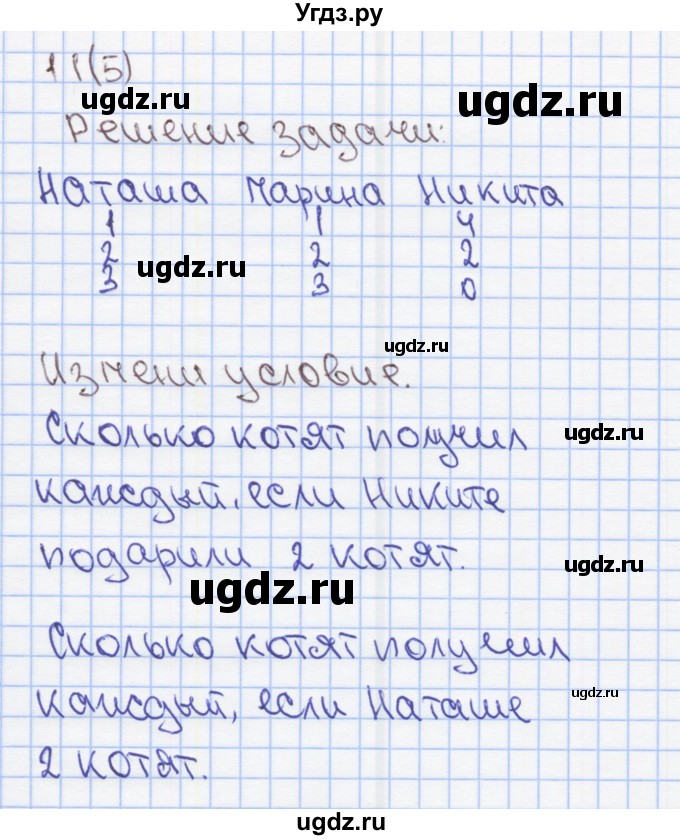 Угдз.ру
11(5)
ugdz.ru ugdz.ru
Решение задачи:
Наташа Марина Никита
1 1 4
2 ugdz.ru 2 2
3 3 0
ugdz.ru
Измени условие.
Сколько котят получил ugdz.ru
каждый, если Никите
подарили 2 котят. ugdz.ru
ugdz.ru
Сколько котят получил
каждый, если Наташе ugdz.ru
2 котят.
ugdz.ru
ugdz.ru